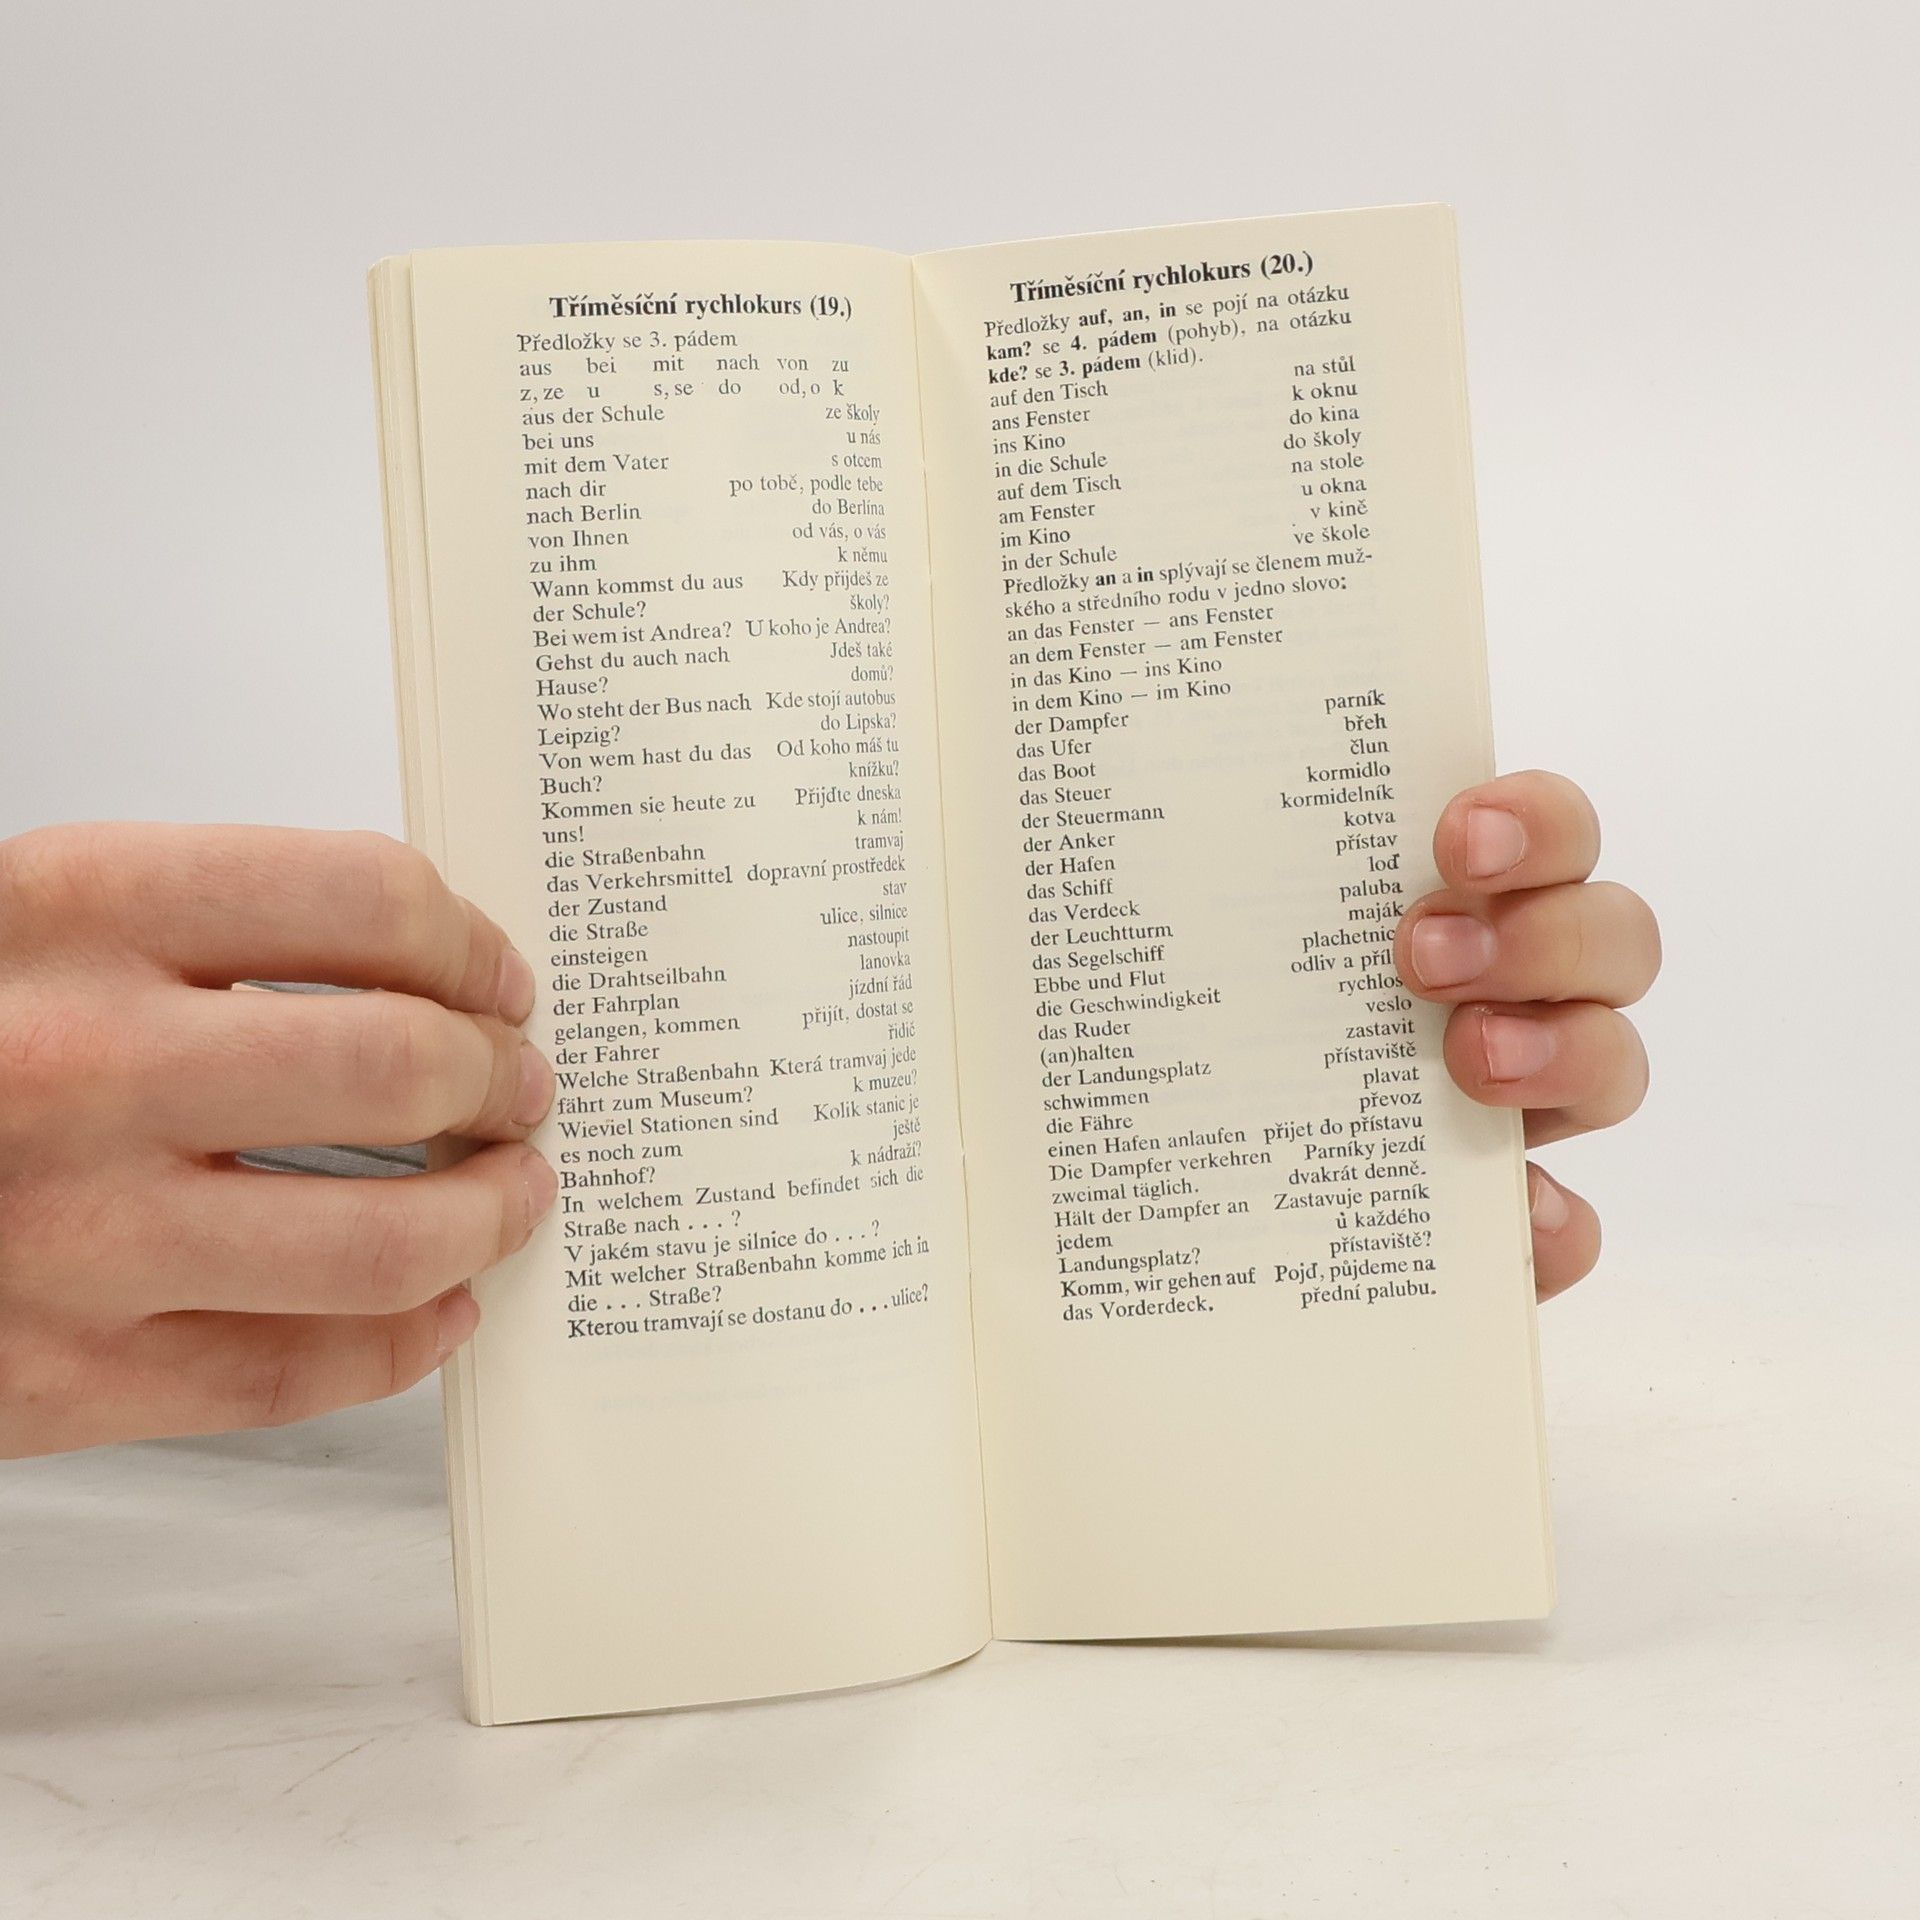 Tříměsíční rychlokurs (19.)
Předložky se 3. pádem
aus bei mit nach von zu
z, ze u s, se do od, o k
aus der Schule ze školy
bei uns u nás
mit dem Vater s otcem
nach dir po tobě, podle tebe
nach Berlin do Berlína
von Ihnen od vás, o vás
zu ihm k němu
Wann kommst du aus Kdy přijdeš ze
der Schule? školy?
Bei wem ist Andrea? U koho je Andrea?
Gehst du auch nach Jdeš také
Hause? domů?
Wo steht der Bus nach Kde stojí autobus
Leipzig? do Lipska?
Von wem hast du das Od koho máš tu
Buch? knížku?
Kommen sie heute zu Přijďte dneska
uns! k nám!
die Straßenbahn tramvaj
das Verkehrsmittel dopravní prostředek
der Zustand stav
die Straße ulice, silnice
einsteigen nastoupit
die Drahtseilbahn lanovka
der Fahrplan jízdní řád
gelangen, kommen přijít, dostat se
der Fahrer řidič
Welche Straßenbahn Která tramvaj jede
fährt zum Museum? k muzeu?
Wieviel Stationen sind Kolik stanic je
es noch zum ještě
Bahnhof? k nádraží?
In welchem Zustand befindet sich die
Straße nach . . . ?
V jakém stavu je silnice do . . . ?
Mit welcher Straßenbahn komme ich in
die . . . Straße?
Kterou tramvají se dostanu do . . . ulice?
Tříměsíční rychlokurs (20.)
Předložky auf, an, in se pojí na otázku
kam? se 4. pádem (pohyb), na otázku
kde? se 3. pádem (klid).
auf den Tisch na stůl
ans Fenster k oknu
ins Kino do kina
in die Schule do školy
auf dem Tisch na stole
am Fenster u okna
im Kino v kině
in der Schule ve škole
Předložky an a in splývají se členem muž-
ského a středního rodu v jedno slovo:
an das Fenster — ans Fenster
an dem Fenster — am Fenster
in das Kino — ins Kino
in dem Kino — im Kino
der Dampfer parník
das Ufer břeh
das Boot člun
das Steuer kormidlo
der Steuermann kormidelník
der Anker kotva
der Hafen přístav
das Schiff loď
das Verdeck paluba
der Leuchtturm maják
das Segelschiff
Ebbe und Flut odliv a
die Geschwindigkeit
das Ruder veslo
(an)halten zastavit
der Landungsplatz přístaviště
schwimmen plavat
die Fähre převoz
einen Hafen anlaufen přijet do přístavu
Die Dampfer verkehren Parníky jezdí
zweimal täglich. dvakrát denně.
Hält der Dampfer an Zastavuje parník
jedem u každého
Landungsplatz? přístaviště?
Komm, wir gehen auf Pojď, půjdeme na
das Vorderdeck. přední palubu.